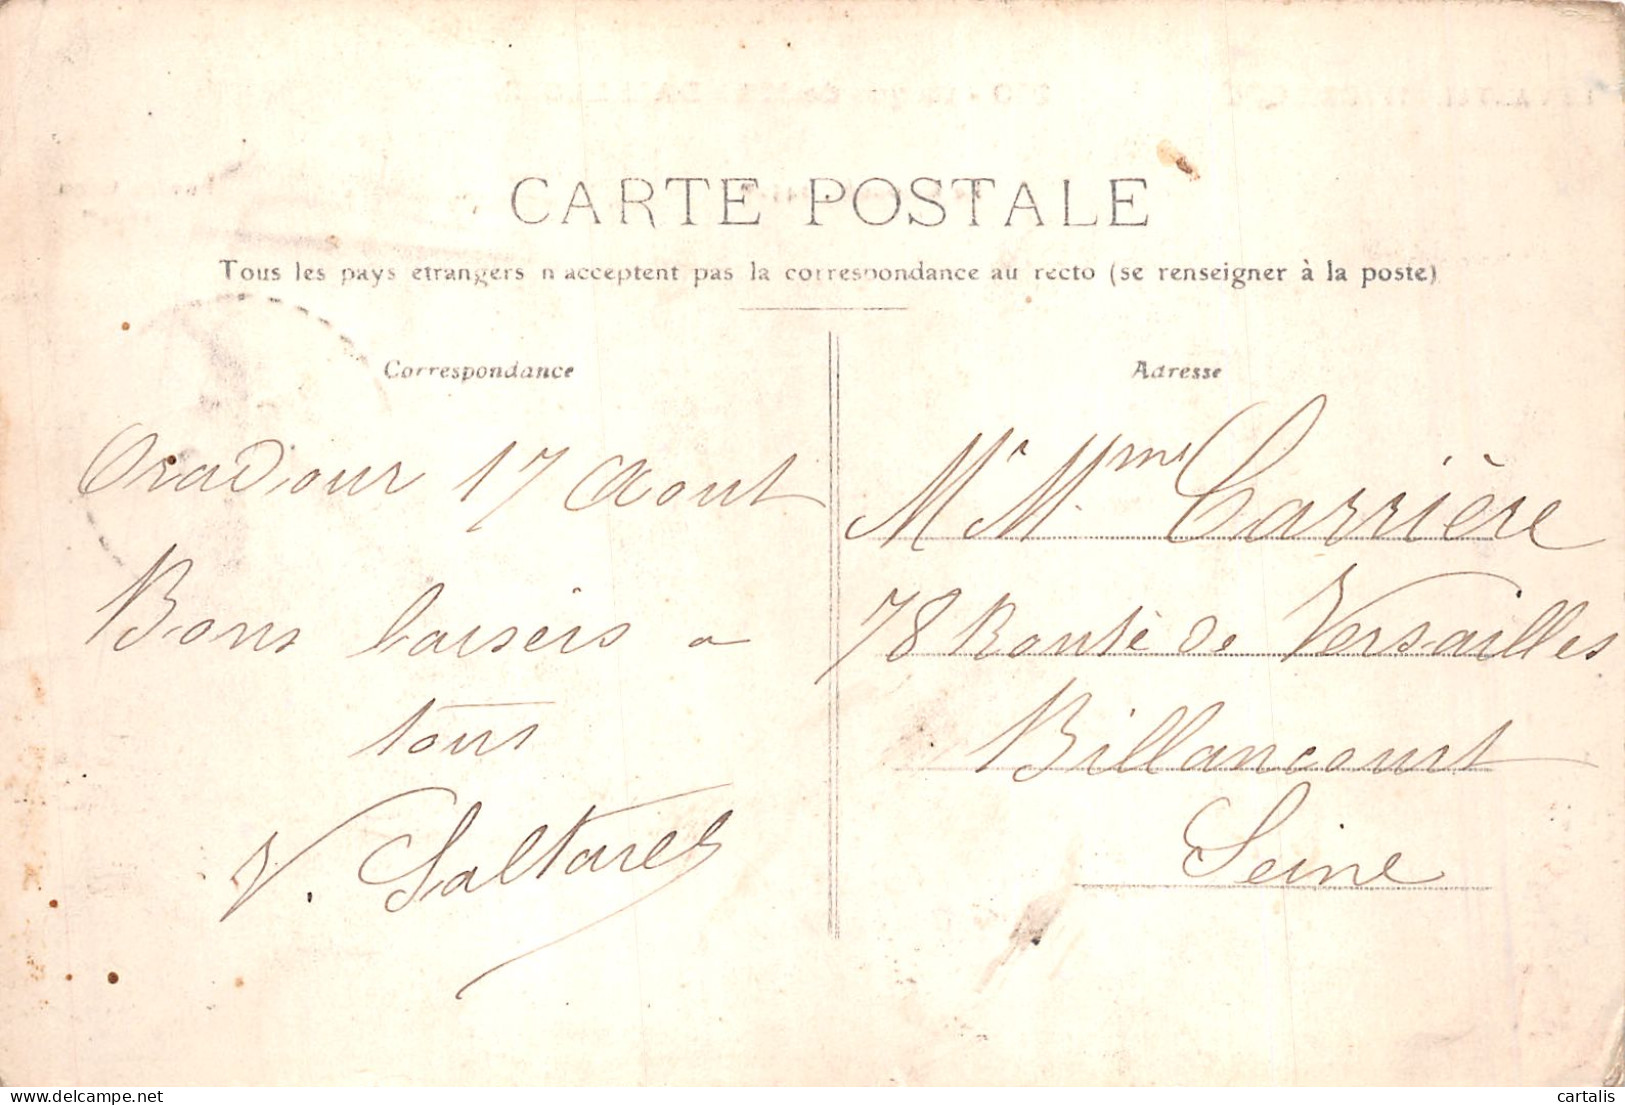 CARTE POSTALE
Tous les pays etrangers n acceptent pas la correspondance au recto (se renseigner à la poste)
Correspondance
Oradour 17 Aout
Bons baisers a
tous
V. Saltarel
Adresse
Mr Mme Carrière
78 Route de Versailles
Billancourt
Seine
delcampe.net
cartalis